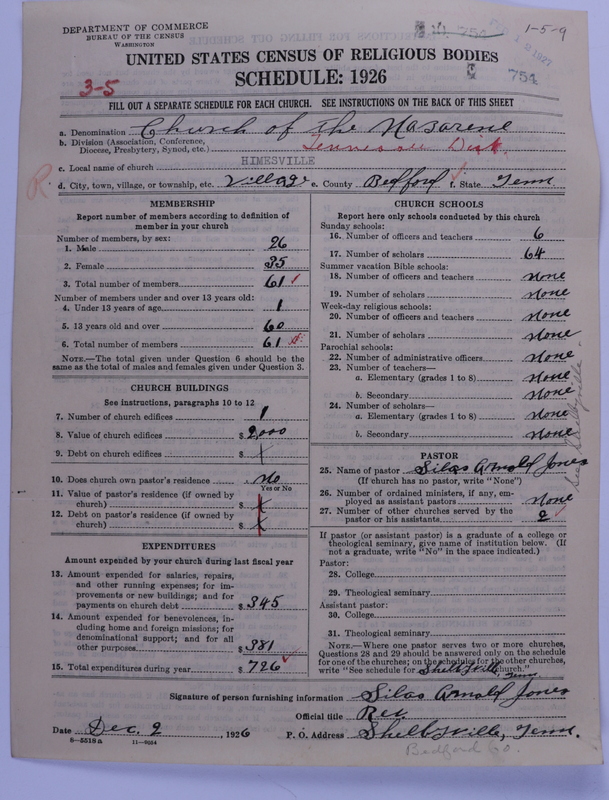 DEPARTMENT OF COMMERCE
BUREAU OF THE CENSUS
WASHINGTON
754
1-5-9
UNITED STATES CENSUS OF RELIGIOUS BODIES
SCHEDULE: 1926
754
3-5
FILL OUT A SEPARATE SCHEDULE FOR EACH CHURCH. SEE INSTRUCTIONS ON THE BACK OF THIS SHEET
a. Denomination Church of the Nazarene
b. Division (Association, Conference, Diocese, Presbytery, Synod, etc.) Tennessee Dist.
c. Local name of church HIMESVILLE
R
d. City, town, village, or township, etc. Village e. County Bedford f. State Tenn
MEMBERSHIP
Report number of members according to definition of
member in your church
Number of members, by sex:
1. Male 26
2. Female 35
3. Total number of members 61
Number of members under and over 13 years old:
4. Under 13 years of age 1
5. 13 years old and over 60
6. Total number of members 61
NOTE.—The total given under Question 6 should be the
same as the total of males and females given under Question 3.
CHURCH BUILDINGS
See instructions, paragraphs 10 to 12
7. Number of church edifices 1
8. Value of church edifices $ 2,000
9. Debt on church edifices $ x
10. Does church own pastor's residence No
Yes or No
11. Value of pastor's residence (if owned by
church) $ x
12. Debt on pastor's residence (if owned by
church) $ x
EXPENDITURES
Amount expended by your church during last fiscal year
13. Amount expended for salaries, repairs,
and other running expenses; for im-
provements or new buildings; and for
payments on church debt $ 345
14. Amount expended for benevolences, in-
cluding home and foreign missions; for
denominational support; and for all
other purposes $ 381
15. Total expenditures during year $ 726
CHURCH SCHOOLS
Report here only schools conducted by this church
Sunday schools:
16. Number of officers and teachers 6
17. Number of scholars 64
Summer vacation Bible schools:
18. Number of officers and teachers none
19. Number of scholars none
Week-day religious schools:
20. Number of officers and teachers none
21. Number of scholars none
Parochial schools:
22. Number of administrative officers none
23. Number of teachers—
a. Elementary (grades 1 to 8) none
b. Secondary none
24. Number of scholars—
a. Elementary (grades 1 to 8) none
b. Secondary none
PASTOR
25. Name of pastor Silas Arnold Jones
(If church has no pastor, write "None")
26. Number of ordained ministers, if any, em-
ployed as assistant pastors none
27. Number of other churches served by the
pastor or his assistants 2
If pastor (or assistant pastor) is a graduate of a college or
theological seminary, give name of institution below. (If
not a graduate, write "No" in the space indicated.)
Pastor:
28. College
29. Theological seminary
Assistant pastor:
30. College
31. Theological seminary
NOTE.—Where one pastor serves two or more churches,
Questions 28 and 29 should be answered only on the schedule
for one of the churches; on the schedules for the other churches,
write "See schedule for Shelbyville, Tenn church."
Signature of person furnishing information Silas Arnold Jones
Official title Rev
Date Dec. 2, 1926 P. O. Address Shelbyville, Tenn.
8-5518a 11-9034
Bedford Co.